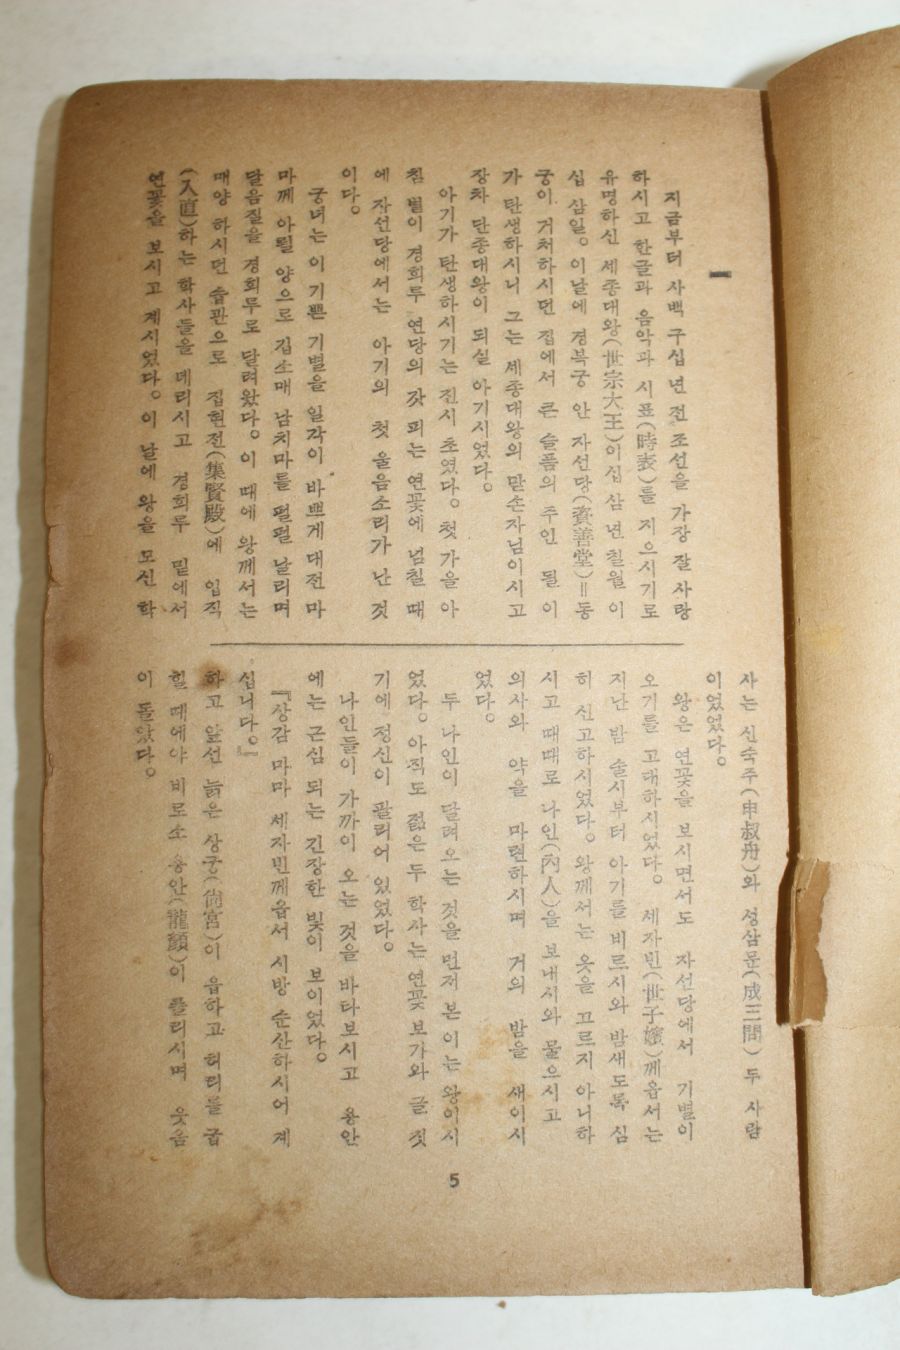 一
지금부터 사백 구십 년 전 조선을 가장 잘 사랑
하시고 한글과 음악과 시표(時表)를 지으시기로
유명하신 세종대왕(世宗大王)이십 삼 년 칠월 이
십 삼일。이날에 경복궁 안 자선당(資善堂)=동
궁이 거처하시던 집에서 큰 슬픔의 주인 될 이
가 탄생하시니 그는 세종대왕의 맏손자님이시고
장차 단종대왕이 되실 아기시었다。
아기가 탄생하시기는 진시 초였다。첫 가을 아
침 볕이 경희루 연당의 갓 피는 연꽃에 넘칠 때
에 자선당에서는 아기의 첫 울음소리가 난 것
이다。
궁녀는 이 기쁜 기별을 일각이 바쁘게 대전 마
마께 아뢸 양으로 깁소매 남치마를 펄펄 날리며
달음질을 경회루로 달려왔다。이 때에 왕께서는
매양 하시던 습관으로 집현전(集賢殿)에 입직
(入直)하는 학사들을 데리시고 경회루 밑에서
연꽃을 보시고 계시었다。이 날에 왕을 모신 학
사는 신숙주(申叔舟)와 성삼문(成三問) 두 사람
이었었다。
왕은 연꽃을 보시면서도 자선당에서 기별이
오기를 고대하시었다。세자빈(世子嬪)께옵서는
지난 밤 술시부터 아기를 비르시와 밤새도록 심
히 신고하시었다。왕께서는 옷을 끄르지 아니하
시고 때때로 나인(內人)을 보내시와 물으시고
의사와 약을 마련하시며 거의 밤을 새이시
었다。
두 나인이 달려 오는 것을 먼저 본 이는 왕이시
었다。아직도 젊은 두 학사는 연꽃 보기와 글 짓
기에 정신이 팔리어 있었다。
나인들이 가까이 오는 것을 바라보시고 용안
에는 근심 되는 긴장한 빛이 보이었다。
『상감 마마 세자빈께옵서 시방 순산하시어 계
십니다。』
하고 앞선 늙은 상궁(尙宮)이 읍하고 허리를 굽
힐 때에야 비로소 용안(龍顔)이 풀리시며 웃음
이 돌았다。
5